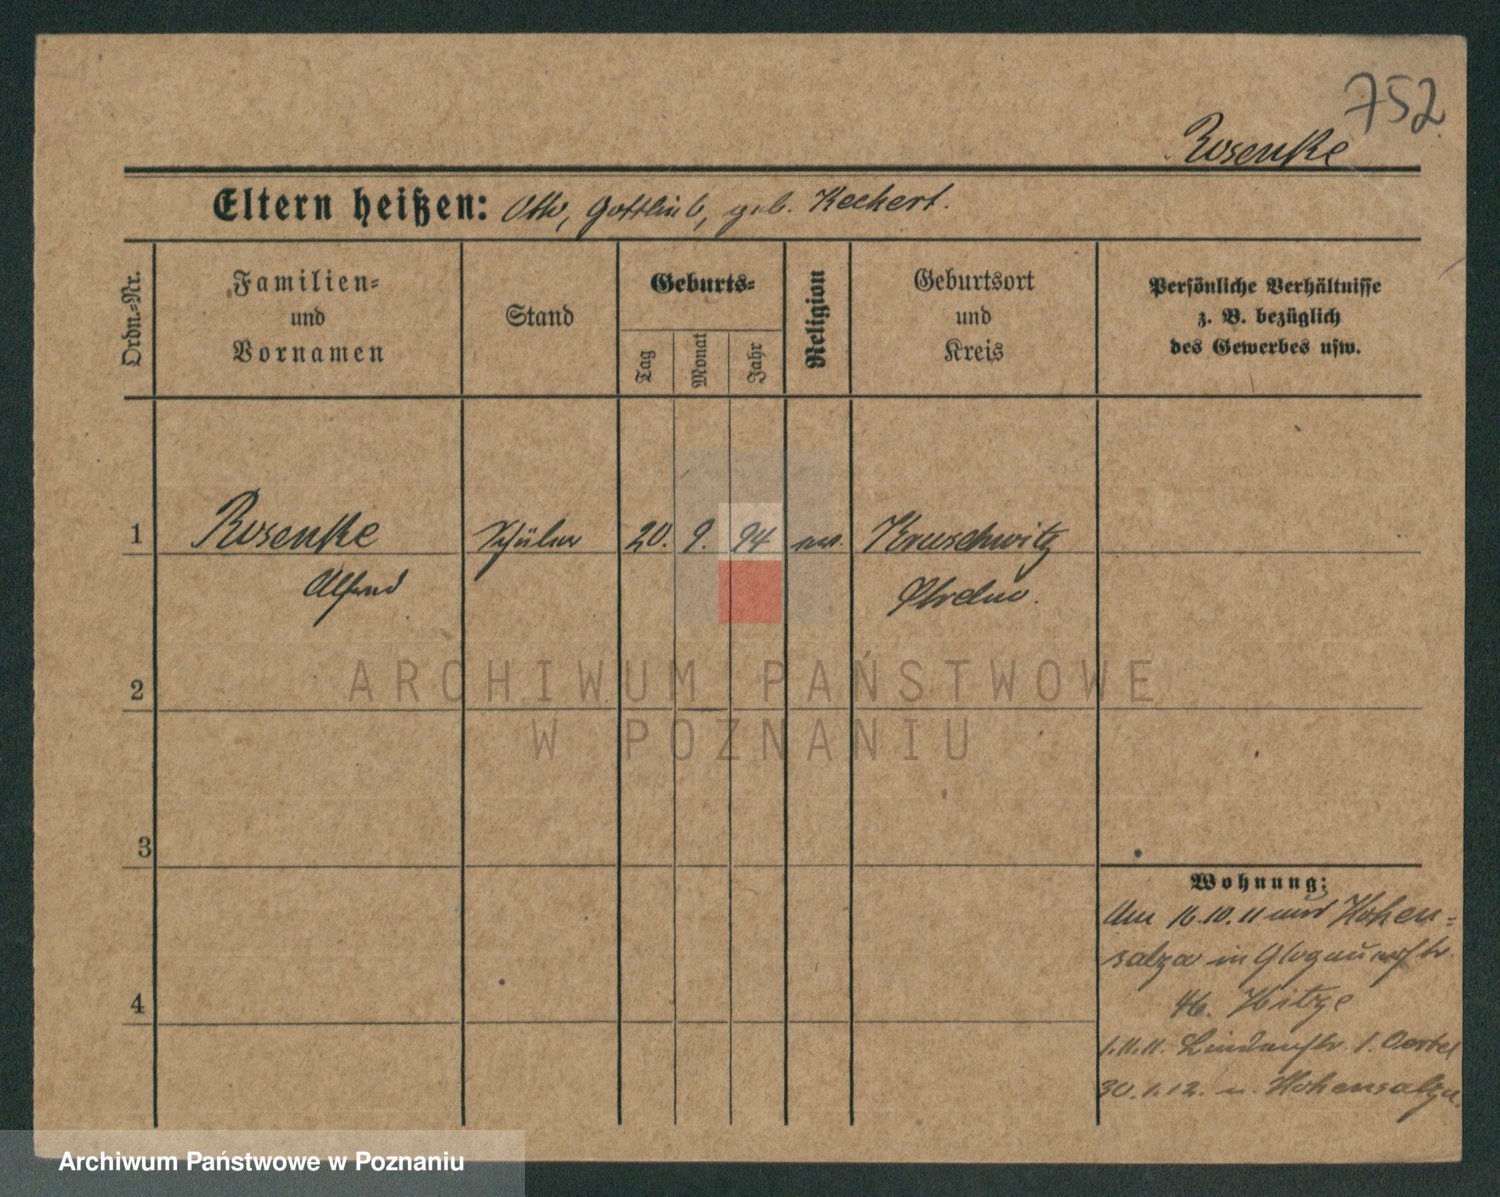 752
Rosenke
Eltern heißen: Otto, Gottlieb, geb. Keckert.
Ordn.-Nr.
Familien-
und
Vornamen
Stand
Geburts-
Tag
Monat
Jahr
Religion
Geburtsort
und
Kreis
Persönliche Verhältnisse
z. B. bezüglich
des Gewerbes usw.
1 Rosenke Schüler 20. 9. 94 ev. Kruschwitz
Alfred Strelno.
2
ARCHIWUM PAŃSTWOWE
W POZNANIU
3
4
Wohnung:
Am 16.10.11 Hohen-
salza in Glogauerstr.
46. Hitze
1.11.11. Lindenstr. 1. Oertel
30.1.12. n. Hohensalza.
Archiwum Państwowe w Poznaniu